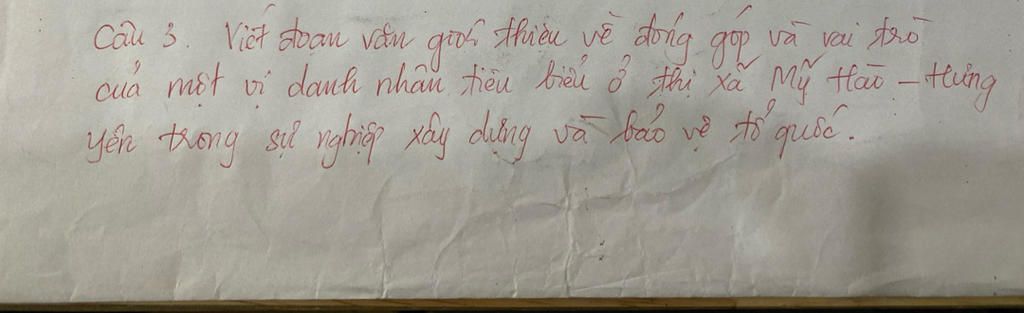 Câu 3. Viết đoạn văn giới thiệu về đóng góp và vai trò
của một vị danh nhân tiêu biểu ở thị xã Mỹ Hào - Hưng
Yên trong sự nghiệp xây dựng và bảo vệ tổ quốc.